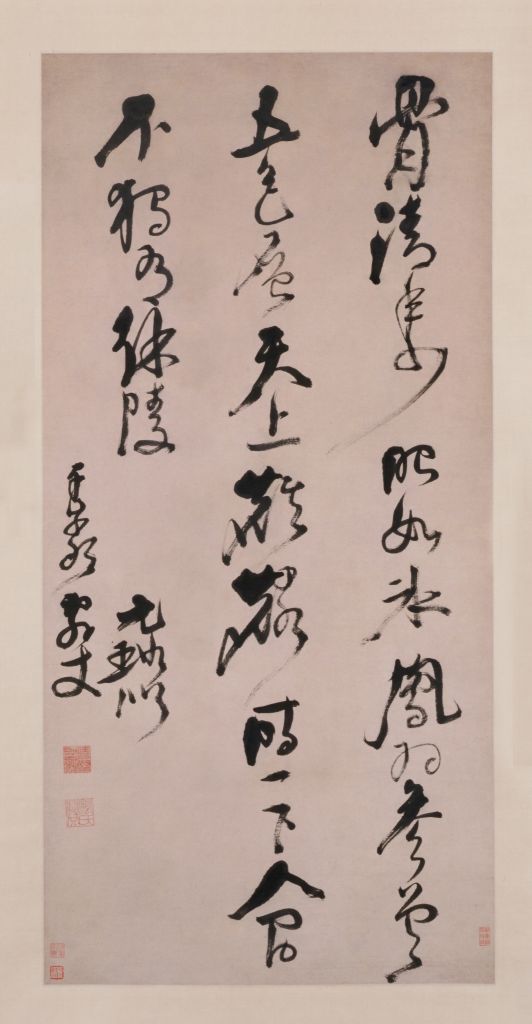 骨清年少眼如冰鳳羽參差
五色層天上麒麟時一下人間
不獨有徐陵
元璐似
丈